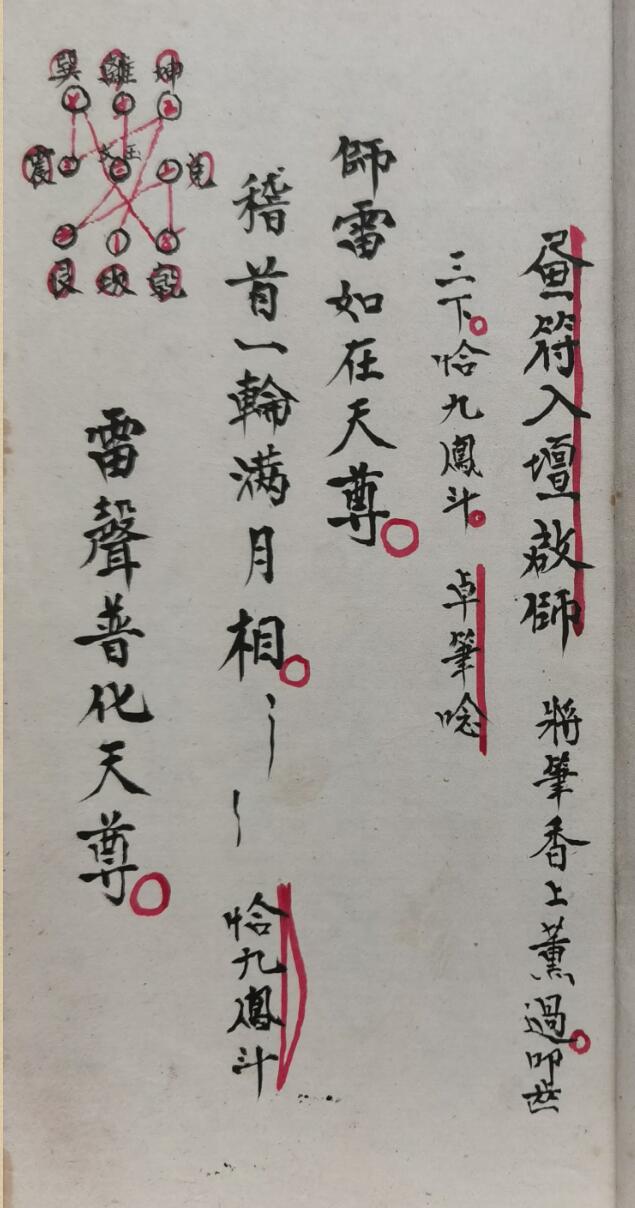 畫符入壇啟師 將筆香上薰過。叩齒
三下。恰九鳳斗。 卓筆唸
師雷如在天尊。
稽首一輪满月相。
恰九鳳斗
雷聲普化天尊。
巽 離 坤
震 兌
艮 坎 乾